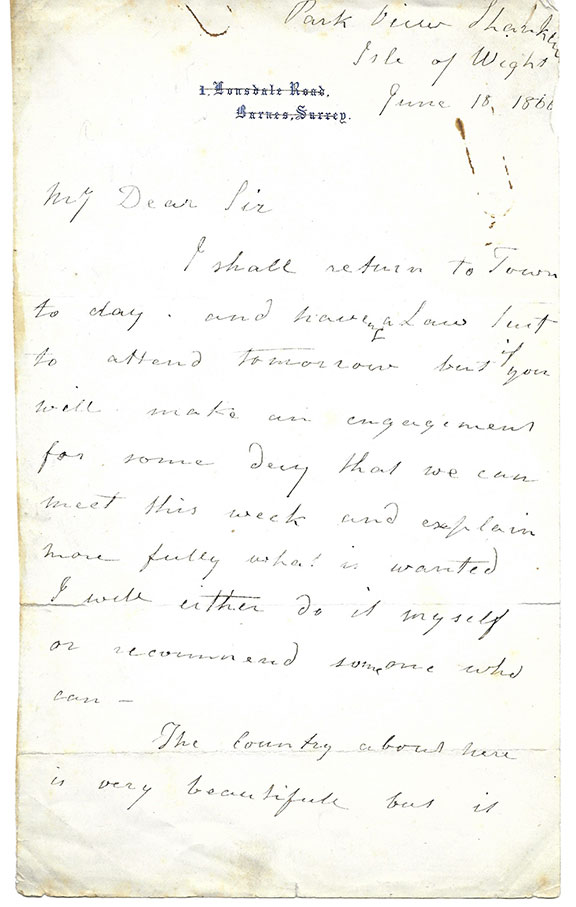 Park View Shanklin
Isle of Wight
June 18, 1866
1, Lonsdale Road,
Barnes, Surrey.
My Dear Sir
I shall return to Town
to day . and haveing a Law Suit
to attend tomorrow but if you
will make an engagement
for some day that we can
meet this week and explain
more fully what is wanted
I will either do it myself
or recommend some one who
can –
The Country about here
is very beautifull but is